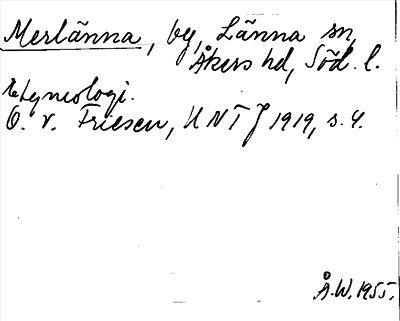 Merlänna, by, Länna sn,
Åkers hd, Söd. l.
Etymologi.
O. v. Friesen, UNTJ 1919, s. 4.
Å.W. 1955.